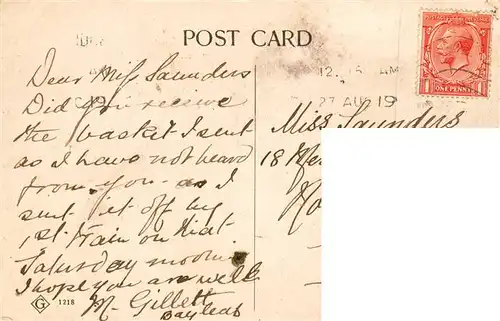 POST CARD
12. 15 AM
27 AUG 19
ONE PENNY
Dear Miss Saunders
Did you receive
the basket I sent
as I have not heard
from you as I
sent it off by
1st train on that
Saturday morn
I hope you are well
M. Gillett
Miss Saunders
18
G 1218